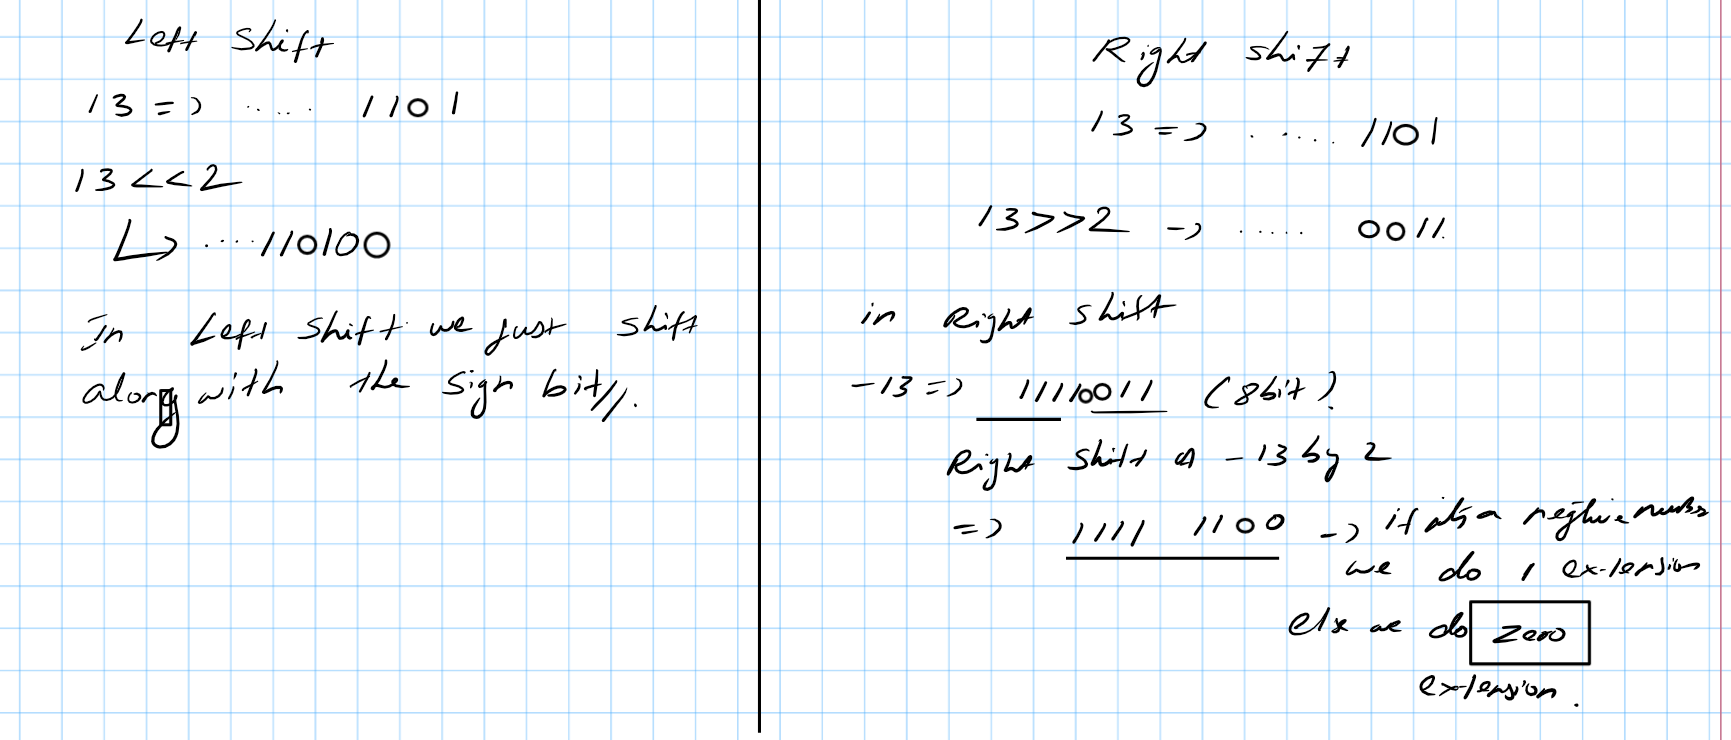 Left Shift
13 => ..... 1101
13<<2
↳ ....110100
In Left shift we just shift
along with the sign bit//.
Right shift
13 => ..... 1101
13>>2 -> ..... 0011.
in Right shift
-13 => 11110011 (8bit)
Right shift of -13 by 2
=> 1111 1100 -> if its a
we do 1 extension
else we do zero
extension.